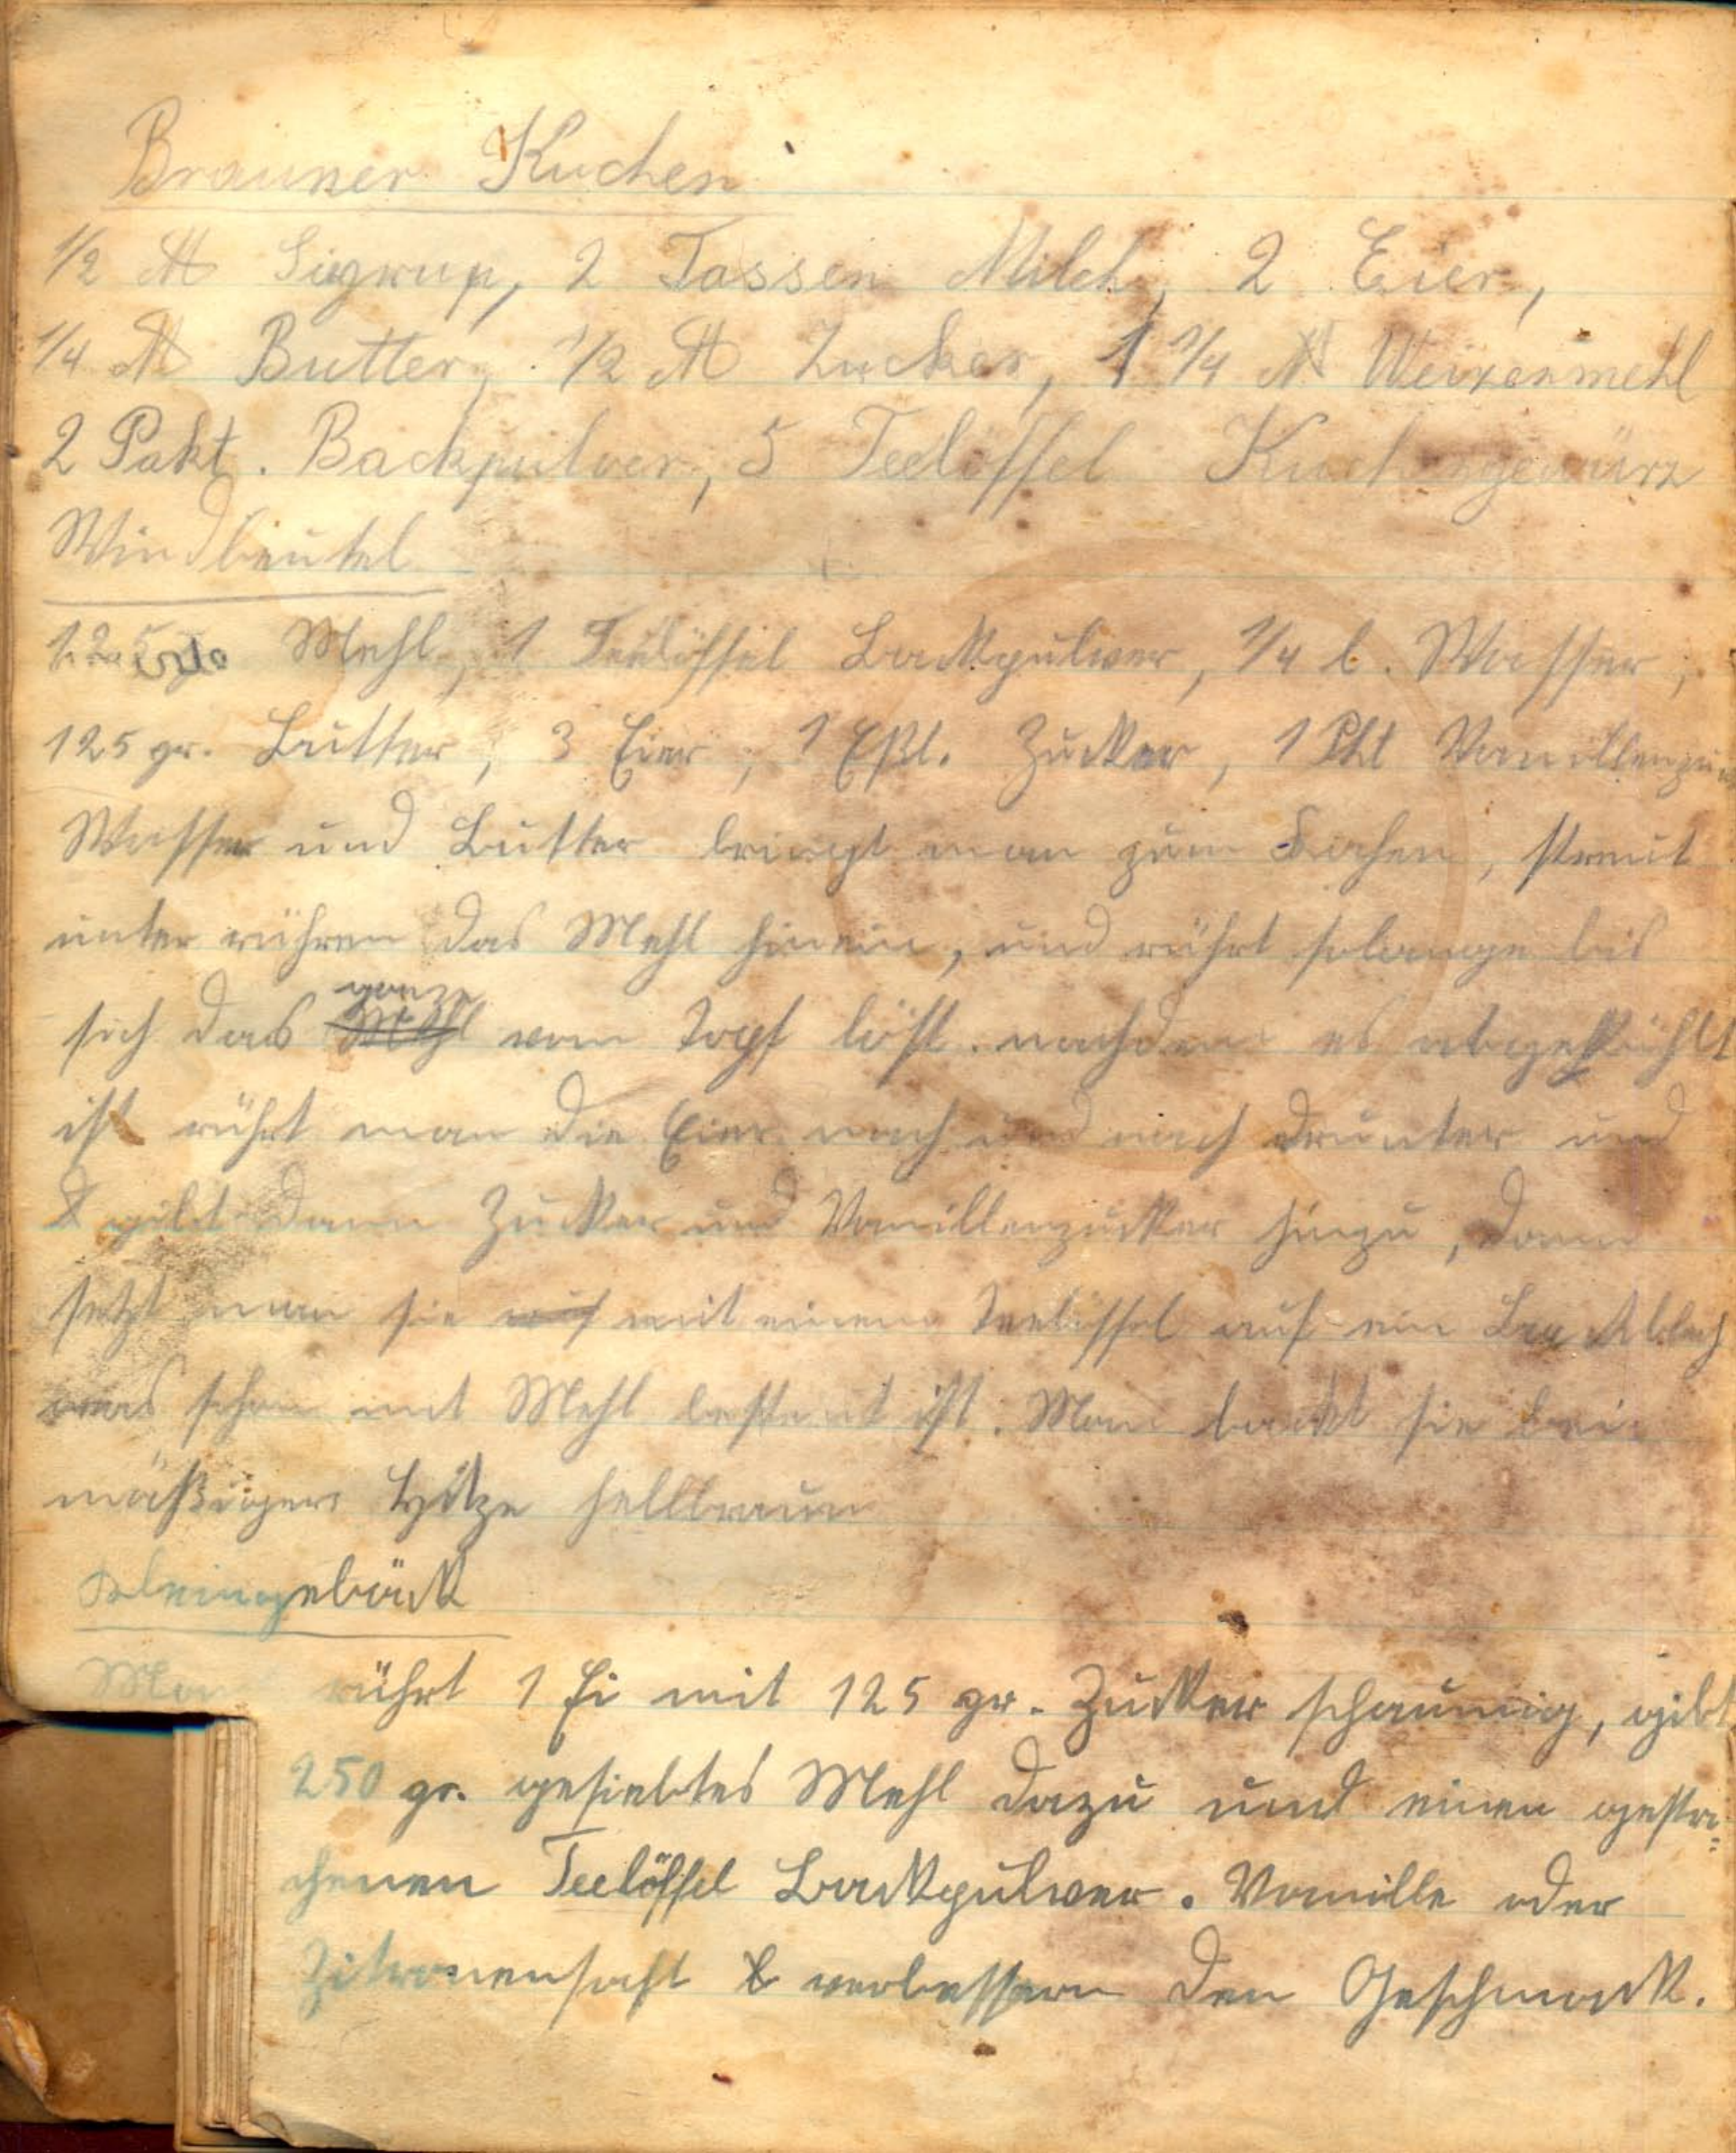 Brauner Kuchen
1/2 ℔ Siyrup, 2 Tassen Milch, 2 Eier,
1/4 ℔ Butter, 1/2 ℔ Zucker, 1 1/4 ℔ Weizenmehl
2 Pakt. Backpulver, 5 Teelöffel Kuchengewürz
Windbeutel
125 Mehl, 1 Teelöffel Backpulver, 1/4 l. Wasser,
125 gr. Butter, 3 Eier, 1 Eßl. Zucker, 1 Pkt Vanillenzu
Wasser und Butter bringt man zum Kochen, streut
unter rühren das Mehl hinein, und rührt solange bis
sich das ganze Mehl vom Topf löst. nachdem es abgekühlt
ist rührt man die Eier nach und nach drunter und
gibt dann Zucker und Vanillenzucker hinzu, dann
setzt man sie auf mit einem Teelöffel auf ein Backblech
was schon mit Mehl bestreut ist. Man backt sie bei
mäßiger Hitze hellbraun
Kleingebäck
Man rührt 1 Ei mit 125 gr. Zucker schaumig, gibt
250 gr. gesiebtes Mehl dazu und einen gestri-
chenen Teelöffel Backpulver. Vanille oder
Zitronensaft verbessern den Geschmack.